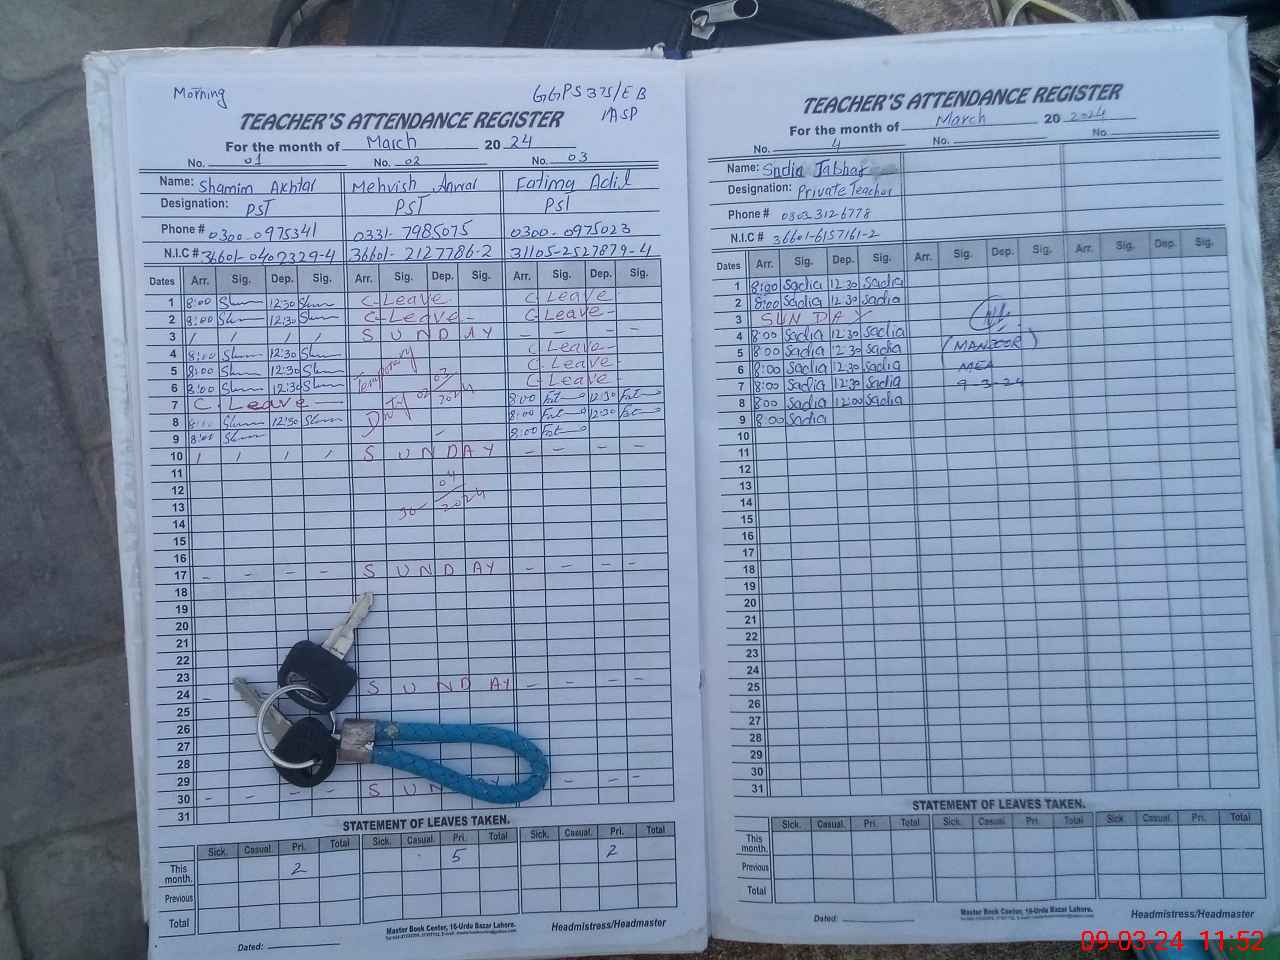 Morning
GGPS 375/EB
TEACHER'S ATTENDANCE REGISTER
For the month of March 20 24
No. 01 No. 02 No. 03
Name: Shamim Akhtar Mehvish Anwar Fatima Adil
Designation: PST PST PST
Phone # 0300-0975341 0331-7985075 0300-0975023
N.I.C # 36601-0409329-4 36601-2127786-2 31105-2527879-4
Dates Arr. Sig. Dep. Sig. Arr. Sig. Dep. Sig. Arr. Sig. Dep. Sig.
1 8:00 12:30 C-Leave C-Leave
2 8:00 12:30 C-Leave- C-Leave-
3 / / / / SUNDAY - - - -
4 8:00 12:30 C-Leave-
5 8:00 12:30 Temporary C-Leave-
6 8:00 12:30 C-Leave-
7 C-Leave 8:00 12:30
8 8:00 12:30 Duty 8:00 12:30
9 8:00 8:00
10 / / / / SUNDAY - - - -
11
12 04
13 30 2024
14
15
16
17 - - - - SUNDAY - - - -
18
19
20
21
22
23
24 - SUNDAY - - - -
25
26
27
28
29
30 - - - - SUN AY - - -
31
STATEMENT OF LEAVES TAKEN.
Sick. Casual. Pri. Total Sick. Casual. Pri. Total Sick. Casual. Pri. Total
This month. 2 5 2
Previous
Total
Dated:
Master Book Center, 16-Urdu Bazar Lahore.
Headmistress/Headmaster
TEACHER'S ATTENDANCE REGISTER
For the month of March 20 2024
No. 4 No. No.
Name: Sadia Jabbar
Designation: Private Teacher
Phone # 0303-3126778
N.I.C # 36601-6157161-2
Dates Arr. Sig. Dep. Sig. Arr. Sig. Dep. Sig. Arr. Sig. Dep. Sig.
1 8:00 Sadia 12:30 Sadia
2 8:00 Sadia 12:30 Sadia
3 SUNDAY
4 8:00 Sadia 12:30 Sadia
5 8:00 Sadia 12:30 Sadia (MANZOOR)
6 8:00 Sadia 12:30 Sadia MEA
7 8:00 Sadia 12:30 Sadia 9-3-24
8 8:00 Sadia 12:00 Sadia
9 8:00 Sadia
10
11
12
13
14
15
16
17
18
19
20
21
22
23
24
25
26
27
28
29
30
31
STATEMENT OF LEAVES TAKEN.
Sick. Casual. Pri. Total Sick. Casual. Pri. Total Sick. Casual. Pri. Total
This month.
Previous
Total
Dated:
Master Book Center, 16-Urdu Bazar Lahore.
Headmistress/Headmaster
09-03-24 11:52